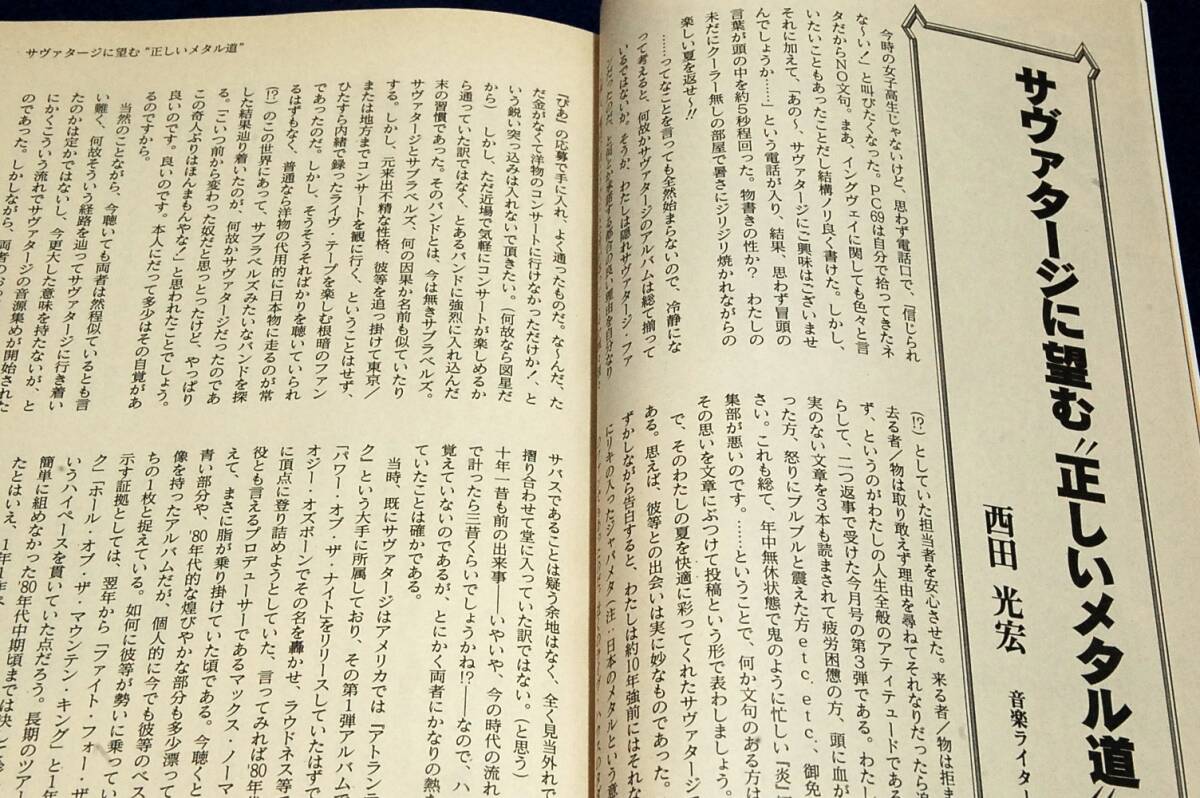 サヴァタージに望む〝正しいメタル道〟
西田 光宏
音楽ライター
今時の女子高生じゃないけど、思わず電話口で、「信じられ
な〜い！」と叫びたくなった。ＰＣ69は自分で拾ってきたネ
タだからＮＯ文句。まあ、イングヴェイに関しても色々と言
いたいこともあったことだし結構ノリ良く書けた。しかし、
それに加えて、「あの〜、サヴァタージにご興味はございませ
んでしょうか……」という電話が入り、結果、思わず冒頭の
言葉が頭の中を約５秒程回った。物書きの性か？ わたしの
未だにクーラー無しの部屋で暑さにジリジリ焼かれながらの
楽しい夏を返せ〜!!
……ってなことを言っても全然始まらないので、冷静にな
って考えると、何故かサヴァタージのアルバムは総て揃って
いるではないか。そうか、わたしは隠れサヴァタージ・ファ
(!?)としていた担当者を安心させた。来る者／物は拒ま
去る者／物は取り敢えず理由を尋ねてそれなりだったら追
ず、というのがわたしの人生全般のアティテュードである
らして、二つ返事で受けた今月号の第３弾である。わたし
実のない文章を３本も読まされて疲労困憊の方、頭に血が
った方、怒りにブルブルと震えた方ｅｔｃ．ｅｔｃ．、御免
さい。これも総て、年中無休状態で鬼のように忙しい『炎』
集部が悪いのです。……ということで、何か文句のある方は
その思いを文章にぶつけて投稿という形で表わしましょう。
で、そのわたしの夏を快適に彩ってくれたサヴァタージで
ある。思えば、彼等との出会いは実に妙なものであった。
ずかしながら告白すると、わたしは約10年強前にはそれな
にリキの入ったジャパメタ（注：日本のメタルという意
サヴァタージに望む〝正しいメタル道〟
『ぴあ』の応募で手に入れ、よく通ったものだ。な〜んだ、た
だ金がなくて洋物のコンサートに行けなかっただけか！、と
いう鋭い突っ込みは入れないで頂きたい。（何故なら図星だ
から） しかし、ただ近場で気軽にコンサートが楽しめるか
ら通っていた訳ではなく、とあるバンドに強烈に入れ込んだ
末の習慣であった。そのバンドとは、今は無きサブラベルズ。
サヴァタージとサブラベルズ、何の因果か名前も似ていたり
する。しかし、元来出不精な性格、彼等を追っ掛けて東京／
または地方までコンサートを観に行く、ということはせず、
ひたすら内緒で録ったライヴ・テープを楽しむ根暗のファン
であったのだ。しかし、そうそうそればかりを聴いていられ
るはずもなく、普通なら洋物の代用的に日本物に走るのが常
(!?)のこの世界にあって、サブラベルズみたいなバンドを探
した結果辿り着いたのが、何故かサヴァタージだったのであ
る。「こいつ前から変わった奴だと思っとったけど、やっぱり
この奇人ぶりはほんまもんやな！」と思われたことでしょう。
良いのです。良いのです。本人にだって多少はその自覚があ
るのですから。
当然のことながら、今聴いても両者は然程似ているとも言
い難く、何故そういう経路を辿ってサヴァタージに行き着い
たのかは定かではないし、今更大した意味を持たないが、と
にかくこういう流れでサヴァタージの音源集めが開始された
のであった。しかしながら、両者のおっ
サバスであることは疑う余地はなく、全く見当外れで
摺り合わせて堂に入っていた訳ではない。（と思う）
十年一昔も前の出来事――いやいや、今の時代の流れ
で計ったら三昔くらいでしょうかね!?――なので、ハ
覚えていないのであるが、とにかく両者にかなりの熱
ていたことは確かである。
当時、既にサヴァタージはアメリカでは「アトラン
ク」という大手に所属しており、その第１弾アルバム
『パワー・オブ・ザ・ナイト』をリリースしていたはずで
オジー・オズボーンでその名を轟かせ、ラウドネス等で
に頂点に登り詰めようとしていた、言ってみれば'80年
役とも言えるプロデューサーであるマックス・ノーマ
えて、まさに脂が乗り掛けていた頃である。今聴くと
青い部分や、'80年代的な煌びやかな部分も多少漂って
像を持ったアルバムだが、個人的に今でも彼等のベス
ちの１枚と捉えている。如何に彼等が勢いに乗ってい
示す証拠としては、翌年から『ファイト・フォー・ザ
ク』『ホール・オブ・ザ・マウンテン・キング』と１年
いうハイペースを貫いていた点だろう。長期のツアー
簡単に組めなかった'80年代中期頃までは決して
たとはいえ、１年１年